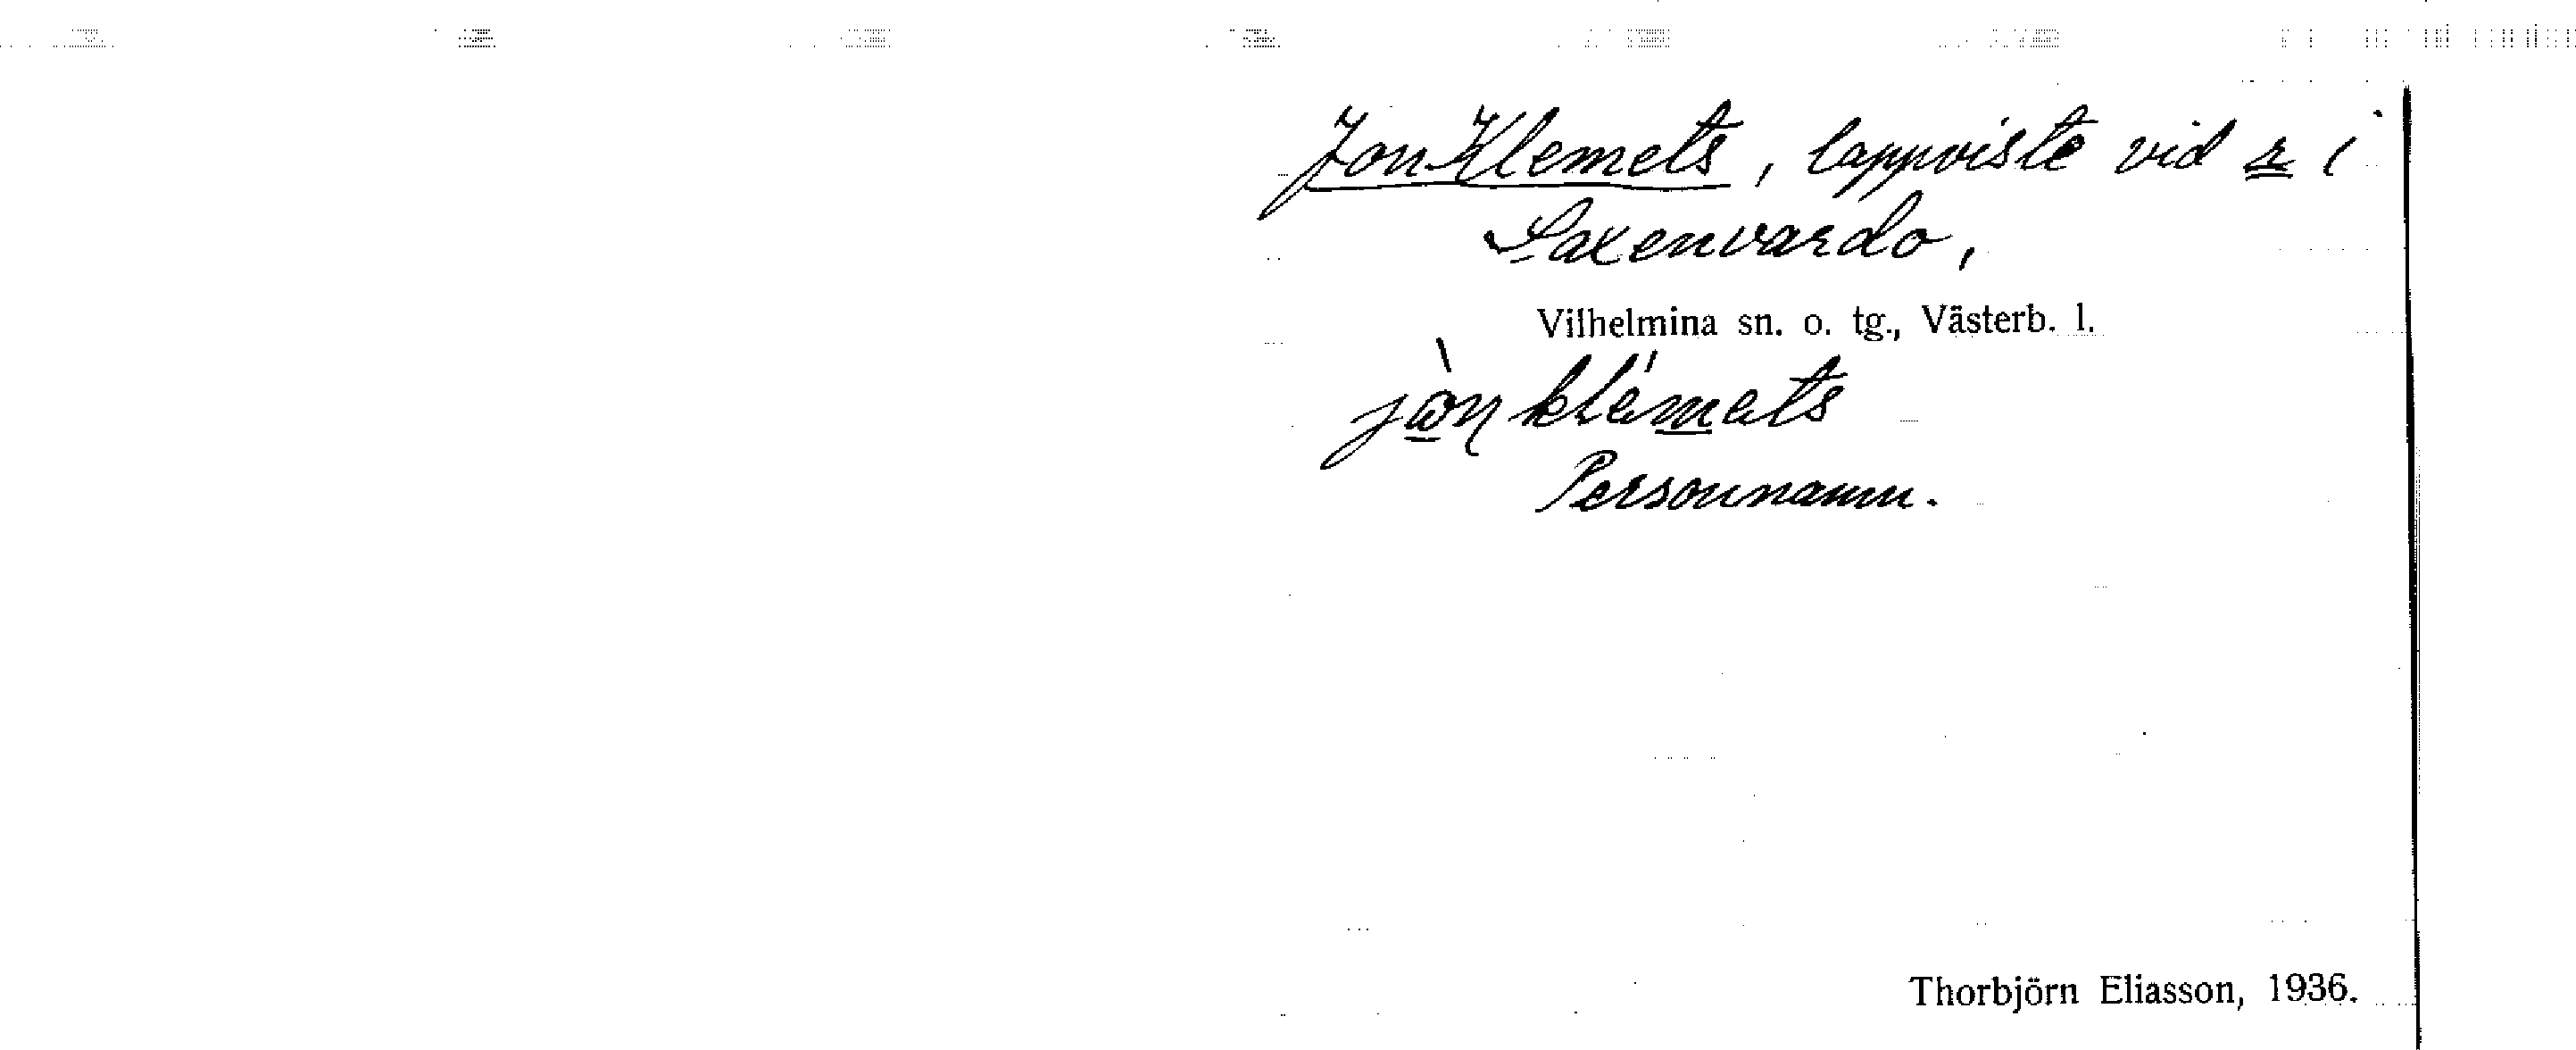 Jon Klemets, lappviste vid s i
Saxenvardo,
Vilhelmina sn. o. tg., Västerb. l.
klémets
Personnamn.
Thorbjörn Eliasson, 1936.